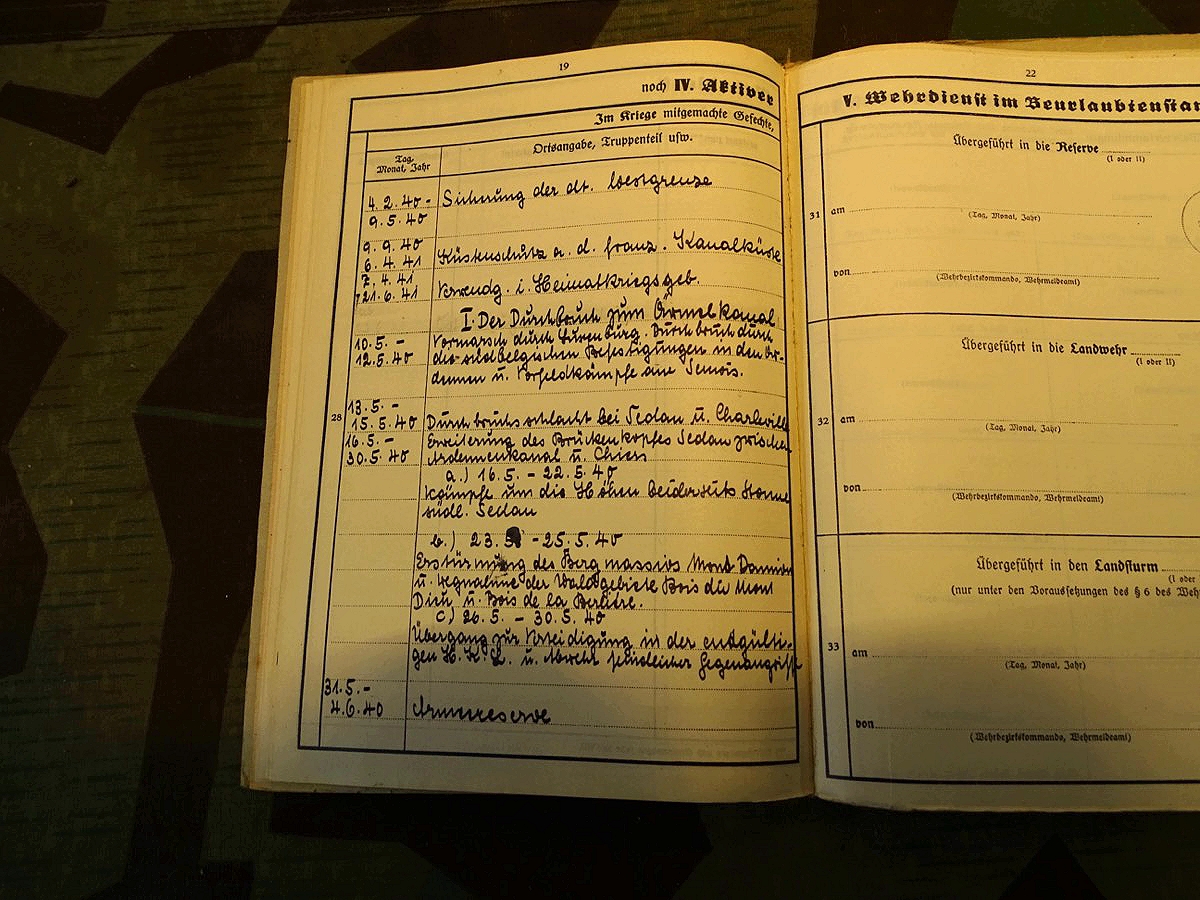 19
noch IV. Aktiver
Im Kriege mitgemachte Gefechte,
Tag, Monat, Jahr
Ortsangabe, Truppenteil usw.
4.2.40 - Sicherung der dt. Westgrenze
9.5.40
9.9.40
6.4.41 Küstenschutz a. d. franz. Kanalküste
7.4.41
21.6.41 Verwendg. i. Heimatkriegsgeb.
I. Der Durchbruch zum Ärmelkanal
10.5. - Vormarsch durch Luxemburg. Durchbruch durch
12.5.40 die südbelgischen Befestigungen in den Ar-
dennen u. Vorfeldkämpfe am Semois.
28
13.5. -
15.5.40 Durchbruchsschlacht bei Sedan u. Charleville
16.5. - Erweiterung des Brückenkopfes Sedan zwischen
30.5.40 Ardennenkanal u. Chiers
a.) 16.5. - 22.5.40
Kämpfe um die Höhen beiderseits Stonne
südl. Sedan
b.) 23.5 - 25.5.40
Erstürmung des Bergmassivs Mont Damion
u. Wegnahme der Waldgebiete Bois du Mont
Dieu u. Bois de la Berlière.
c) 26.5. - 30.5.40
Übergang zur Verteidigung in der endgülti-
gen H.K.L. u. Abwehr feindlicher Gegenangriffe
31.5. -
4.6.40 Armeereserve
22
V. Wehrdienst im Beurlaubtenstan
Übergeführt in die Reserve
(I oder II)
31 am
(Tag, Monat, Jahr)
von
(Wehrbezirkskommando, Wehrmeldeamt)
Übergeführt in die Landwehr
(I oder II)
32 am
(Tag, Monat, Jahr)
von
(Wehrbezirkskommando, Wehrmeldeamt)
Übergeführt in den Landsturm
(I oder
(nur unter den Voraussetzungen des § 6 des Weh
33 am
(Tag, Monat, Jahr)
von
(Wehrbezirkskommando, Wehrmeldeamt)